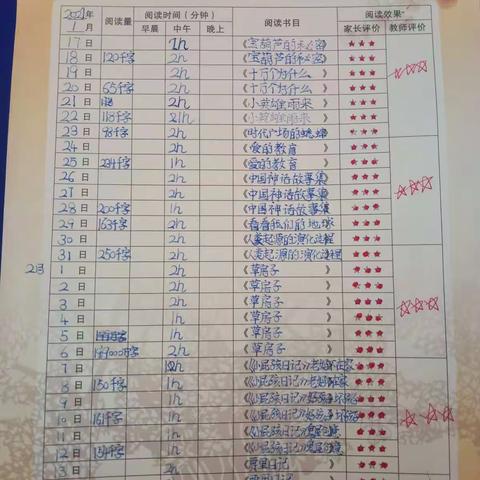 2021年1月 阅读量 阅读时间（分钟） 早晨 中午 晚上 阅读书目 阅读效果 家长评价 教师评价
17日 1h 《宝葫芦的秘密》 ★★★
18日 120千字 2h 《宝葫芦的秘密》 ★★★ ☆☆☆
19日 2h 《十万个为什么 ★★★
20日 65千字 2h 《十万个为什么 ★★★
21日 2h 《小英雄雨来 ★★★
22日 118千字 《小英雄雨来 ★★★
23日 98千字 2h 《时代广场的蟋蟀 ★★★
24日 2h 《爱的教育》 ★★★
25日 1h 《爱的教育》 ★★★
26日 2h 《中国神话故事集 ★★★ ☆☆☆
27日 2h 《中国神话故事集 ★★★
28日 200千字 1h 《中国神话故事集 ★★★
29日 163千字 2h 《看看我们的地球 ★★★
30日 2h 《人类起源的演化过程 ★★★
31日 250千字 2h 《人类起源的演化过程 ★★★
2月 1日 2h 《草房子 ★★★
2日 2h 《草房子》 ★★★
3日 2h 《草房子 ★★★ ☆☆☆
4日 1h 《草房子 ★★★
5日 1h 《草房子 ★★★
6日 2h 《草房子 ★★★
7日 《小屁孩日记》 ★★★
8日 150千字 1h 《小屁孩日记》 ★★★
9日 1h 《小屁孩日记》 ★★★
10日 161千字 1h 《小屁孩日记》 ★★★ ☆☆☆
11日 1h 《小屁孩日记》 ★★★
12日 154千字 1h 《小屁孩日记》 ★★★
13日 2h ★★★